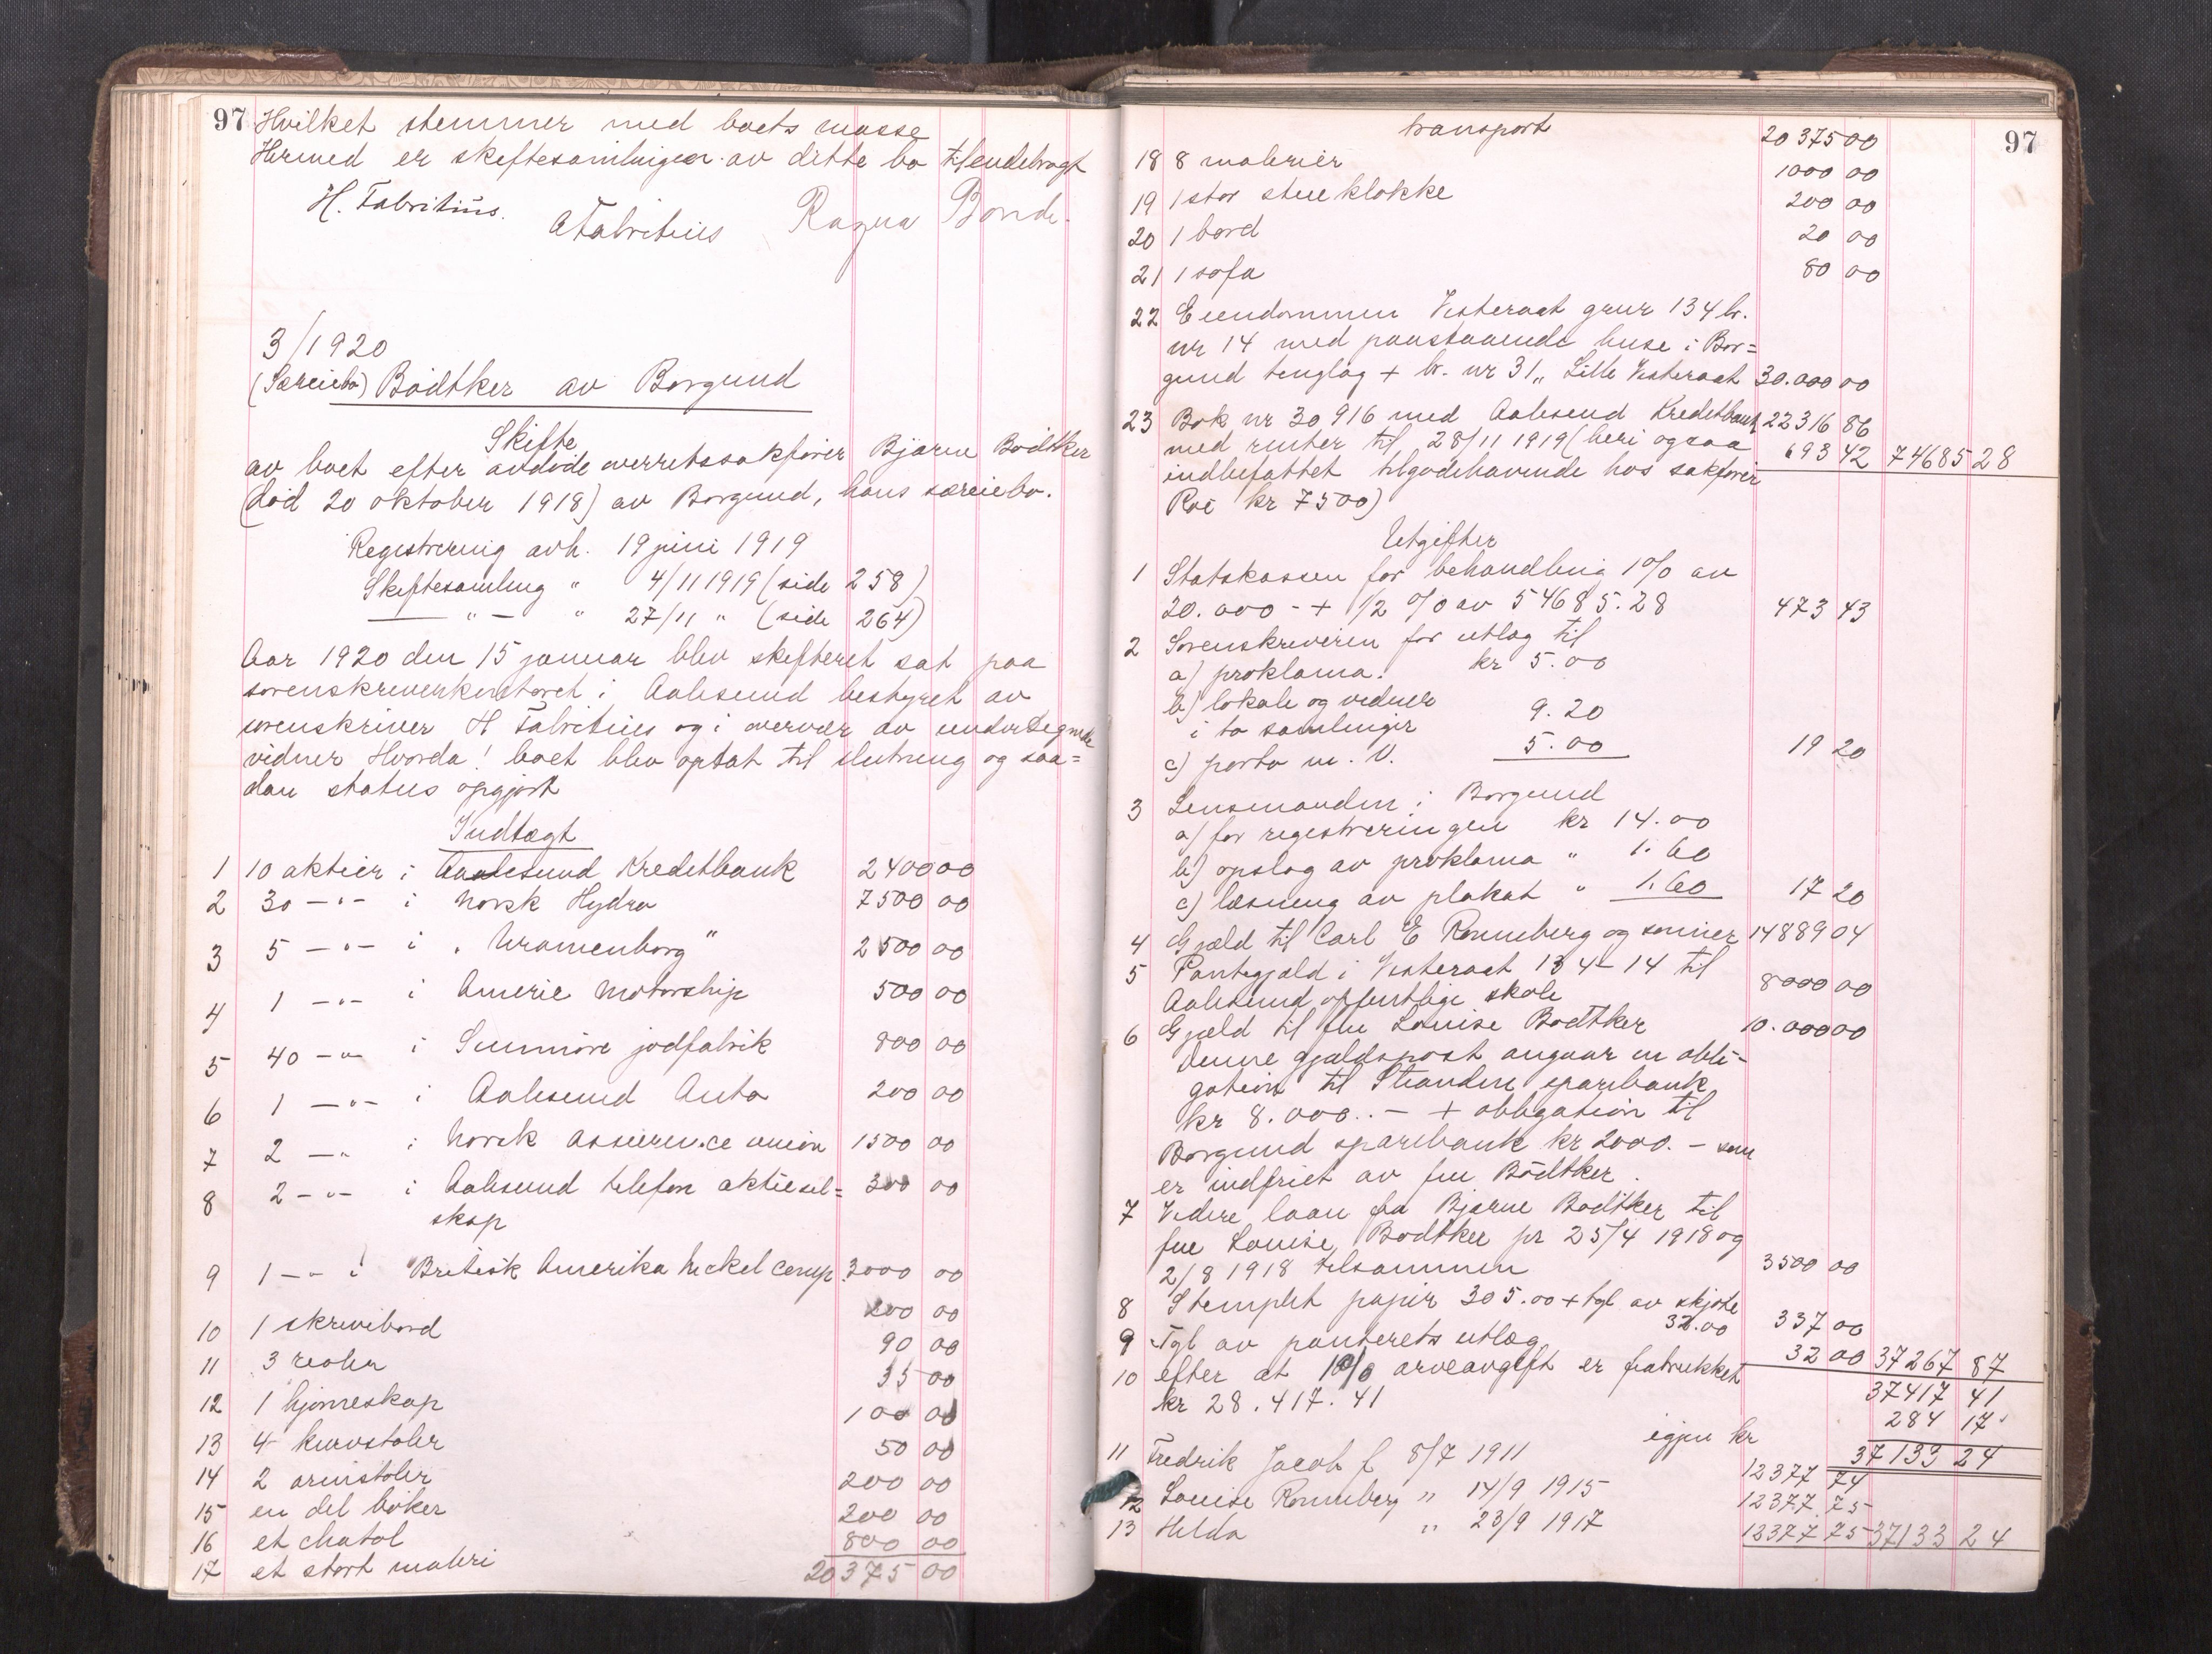 97
Hvilket stemmer med boets masse
Hermed er skiftesamlingen av dette bo tilendebragt
H. Fabritius.
A Fabritius
Ragna Bonde.
3/1920
(Særeiebo) Bödtker av Borgund
Skifte
av boet efter avdöde overretssakförer Bjarne Bödtker
(död 20 oktober 1918) av Borgund, hans særeiebo.
Registrering avh. 19 juni 1919
Skiftesamling " 4/11 1919 (side 258)
— " — " 27/11 " (side 264)
Aar 1920 den 15 januar blev skifteret sat paa
sorenskriverkontoret i Aalesund bestyret av
sorenskriver H Fabritius og i overvær av undertegnede
vidner Hvorda! boet blev optat til slutning og saa=
dan status opgjort
Indtægt
1 10 aktier i Aalesund Kreditbank 2400 00
2 30 —"— i Norsk Hydro 7500 00
3 5 —"— i "Wramenborg" 2500 00
4 1 —"— i Americ Motorship 500 00
5 40 —"— i Sunmöre jodfabrik 800 00
6 1 —"— i Aalesund Auto 200 00
7 2 —" i Norsk assurance union 1500 00
8 2 —"— i Aalesund telefon aktiesel= 300 00
skap
9 1 —"— i "Britisk Amerika Nickel Comp. 3000 00
10 1 skrivebord 200 00
11 3 reoler 90 00
12 1 hjörneskap 35 00
13 4 kurvstoler 100 00
14 2 armstoler 50 00
15 en del böker 200 00
16 et chatol 200 00
17 et stort maleri 800 00
20375 00
97
transport 20375 00
18 8 malerier 1000 00
19 1 stor stueklokke 200 00
20 1 bord 20 00
21 1 sofa 80 00
22 Eiendommen Vesteraat gnr 134 br.
nr 14 med paastaaende huse i Bor=
gund tinglag + br. nr 31 „ Lille Vesteraat 30.000 00
23 Bok nr 30916 med Aalesund Kreditbank 22316 86
med renter til 28/11 1919 (heri ogsaa 693 42 74685 28
indbefattet tilgodehavende hos sakförer
Roe kr 7500)
Utgifter
1 Statskassen for behandling 1% av
20.000 - + 1/2 % av 54685.28 473 43
2 Sorenskriveren for utlæg til
a) proklama. kr 5.00
b) lokale og vidner
i to samlinger 9.20
c) porto m. v. 5.00 19 20
3 Lensmanden i Borgund
a) for registreringen kr 14.00
b) opslag av proklama " 1.60
c) læsning av plakat " 1.60 17 20
4 Gjæld til Carl E Rönneberg og sönner 14889 04
5 Pantegjæld i Vesteraat 134-14 til
Aalesund offentlige skole 8000 00
6 Gjæld til fru Louise Bödtker 10.000 00
Denne gjældspost angaar en obli-
gation til Stranden sparebank
kr 8.000.. — + obligation til
Borgund sparebank kr 2000. — som
er indfriet av fru Bödtker.
7 Videre laan fra Bjarne Bödtker til
frue Louise Bödtker pr 25/4 1918 og
2/8 1918 tilsammen 3500 00
8 Stemplet papir 305.00 + tgl av skjöte
32.00 337 00
9 Tgl av panterets utlæg 32 00 37267 87
10 efter at 10/0 arveavgift er fratrukket 37417 41
kr 28.417.41 284 17
igjen kr 37133 24
11 Fredrik Jacob f 8/7 1911 12377 74
12 Louise Rönneberg " 14/9 1915 12377.75
13 Hilda " 23/9 1917 12377 75 37133 24